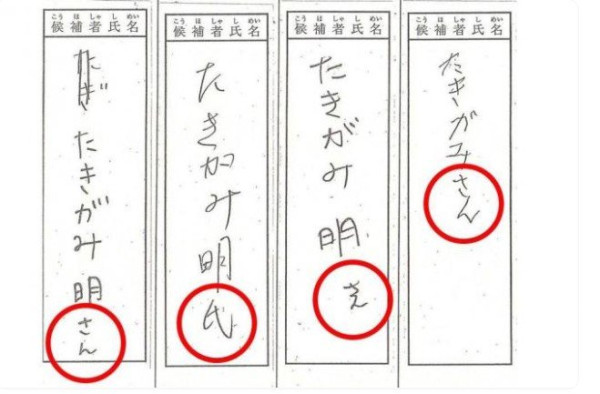 こうほしゃしめい
候補者氏名
たきがみ 明さん
こうほしゃしめい
候補者氏名
たきがみ明氏
こうほしゃしめい
候補者氏名
たきがみ 明 さん
こうほしゃしめい
候補者氏名
たきがみさん